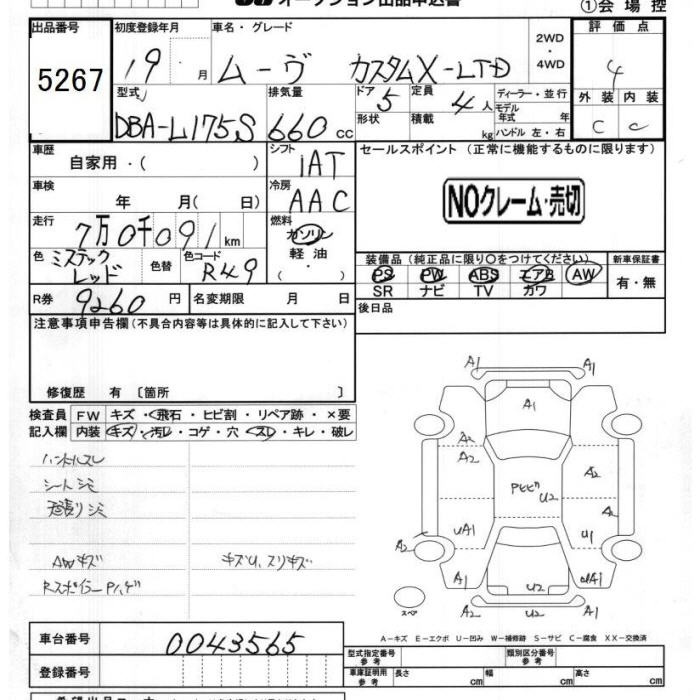 オークション出品申込書
①会場控
出品番号 5267
初度登録年月 19年 月
車名・グレード ムーヴ カスタムX-LTD
2WD・4WD
評価点 4
型式 DBA-L175S
排気量 660cc
ドア 5 形状
定員 4人 積載 kg
ディーラー・並行
モデル年式 年
ハンドル 左・右
外装 C 内装 C
車歴 自家用・( )
シフト IAT
セールスポイント(正常に機能するものに限ります)
NOクレーム・売切
車検 年 月( 日)
冷房 AAC
走行 7万0千091km
燃料 ガソリン 軽油 ( ・ )
色 ミスティックレッド 色替 色コード R49
装備品(純正品に限り○をつけてください)
PS PW ABS エアB AW
SR ナビ TV カワ
新車保証書 有・無
R券 9260円 名変期限 月 日
後日品
注意事項申告欄(不具合内容等は具体的に記入して下さい)
修復歴 有〔箇所 〕
検査員記入欄
FW キズ・飛石・ヒビ割・リペア跡・×要
内装 キズ・汚レ・コゲ・穴・スレ・キレ・破レ
ハンドルスレ
シートシミ
天張りシミ
AWキズ キズU、スリキズ
RスポイラーPハゲ
A1 A1
A1
A2
A2 A2
PヒビU2
A2
UA1 U1
A2
A1 U2 UA1
A2 U2 A2
スペア
A-キズ E-エクボ U-凹み W-補修跡 S-サビ C-腐食 XX-交換済
車台番号 0043565
登録番号
型式指定番号 参考
類別区分番号 参考
車庫証明用 参考 長さ cm 幅 cm 高さ cm